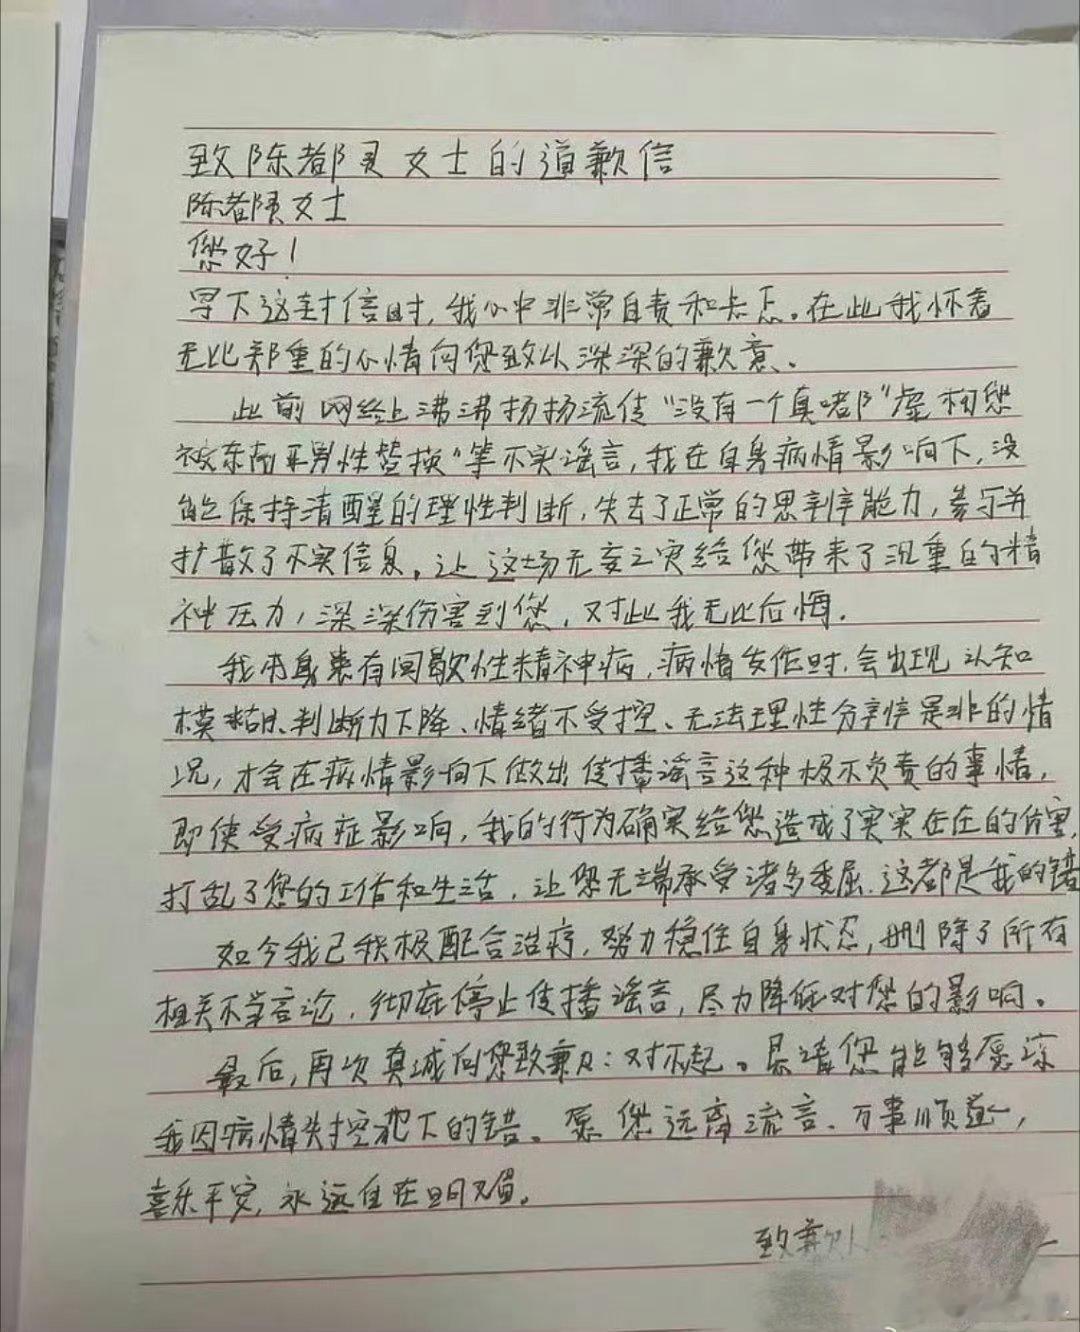 致陈都灵女士的道歉信
陈都灵女士
您好！
写下这封信时，我心中非常自责和忐忑。在此我怀着
无比郑重的心情向您致以深深的歉意。
此前网络上沸沸扬扬流传“没有一个真啫“虚构您
被东南亚男性替换“等不实谣言，我在自身病情影响下，没
能保持清醒的理性判断，失去了正常的思辨能力，参与并
扩散了不实信息。让这场无妄之灾给您带来了沉重的精
神压力，深深伤害到您，对此我无比后悔。
我本身患有间歇性精神病，病情发作时，会出现认知
模糊、判断力下降、情绪不受控、无法理性分辨是非的情
况，才会在病情影响下做出传播谣言这种极不负责的事情，
即使受病症影响，我的行为确实给您造成了实实在在的伤害，
打乱了您的工作和生活，让您无端承受诸多委屈，这都是我的错
如今我已积极配合治疗，努力稳住自身状态，删除了所有
相关不当言论，彻底停止传播谣言，尽力降低对您的影响。
最后，再次真诚向您致歉：对不起。恳请您能够原谅
我因病情失控犯下的错。愿您远离流言、万事顺遂，
喜乐平安，永远自在明媚。
致歉人